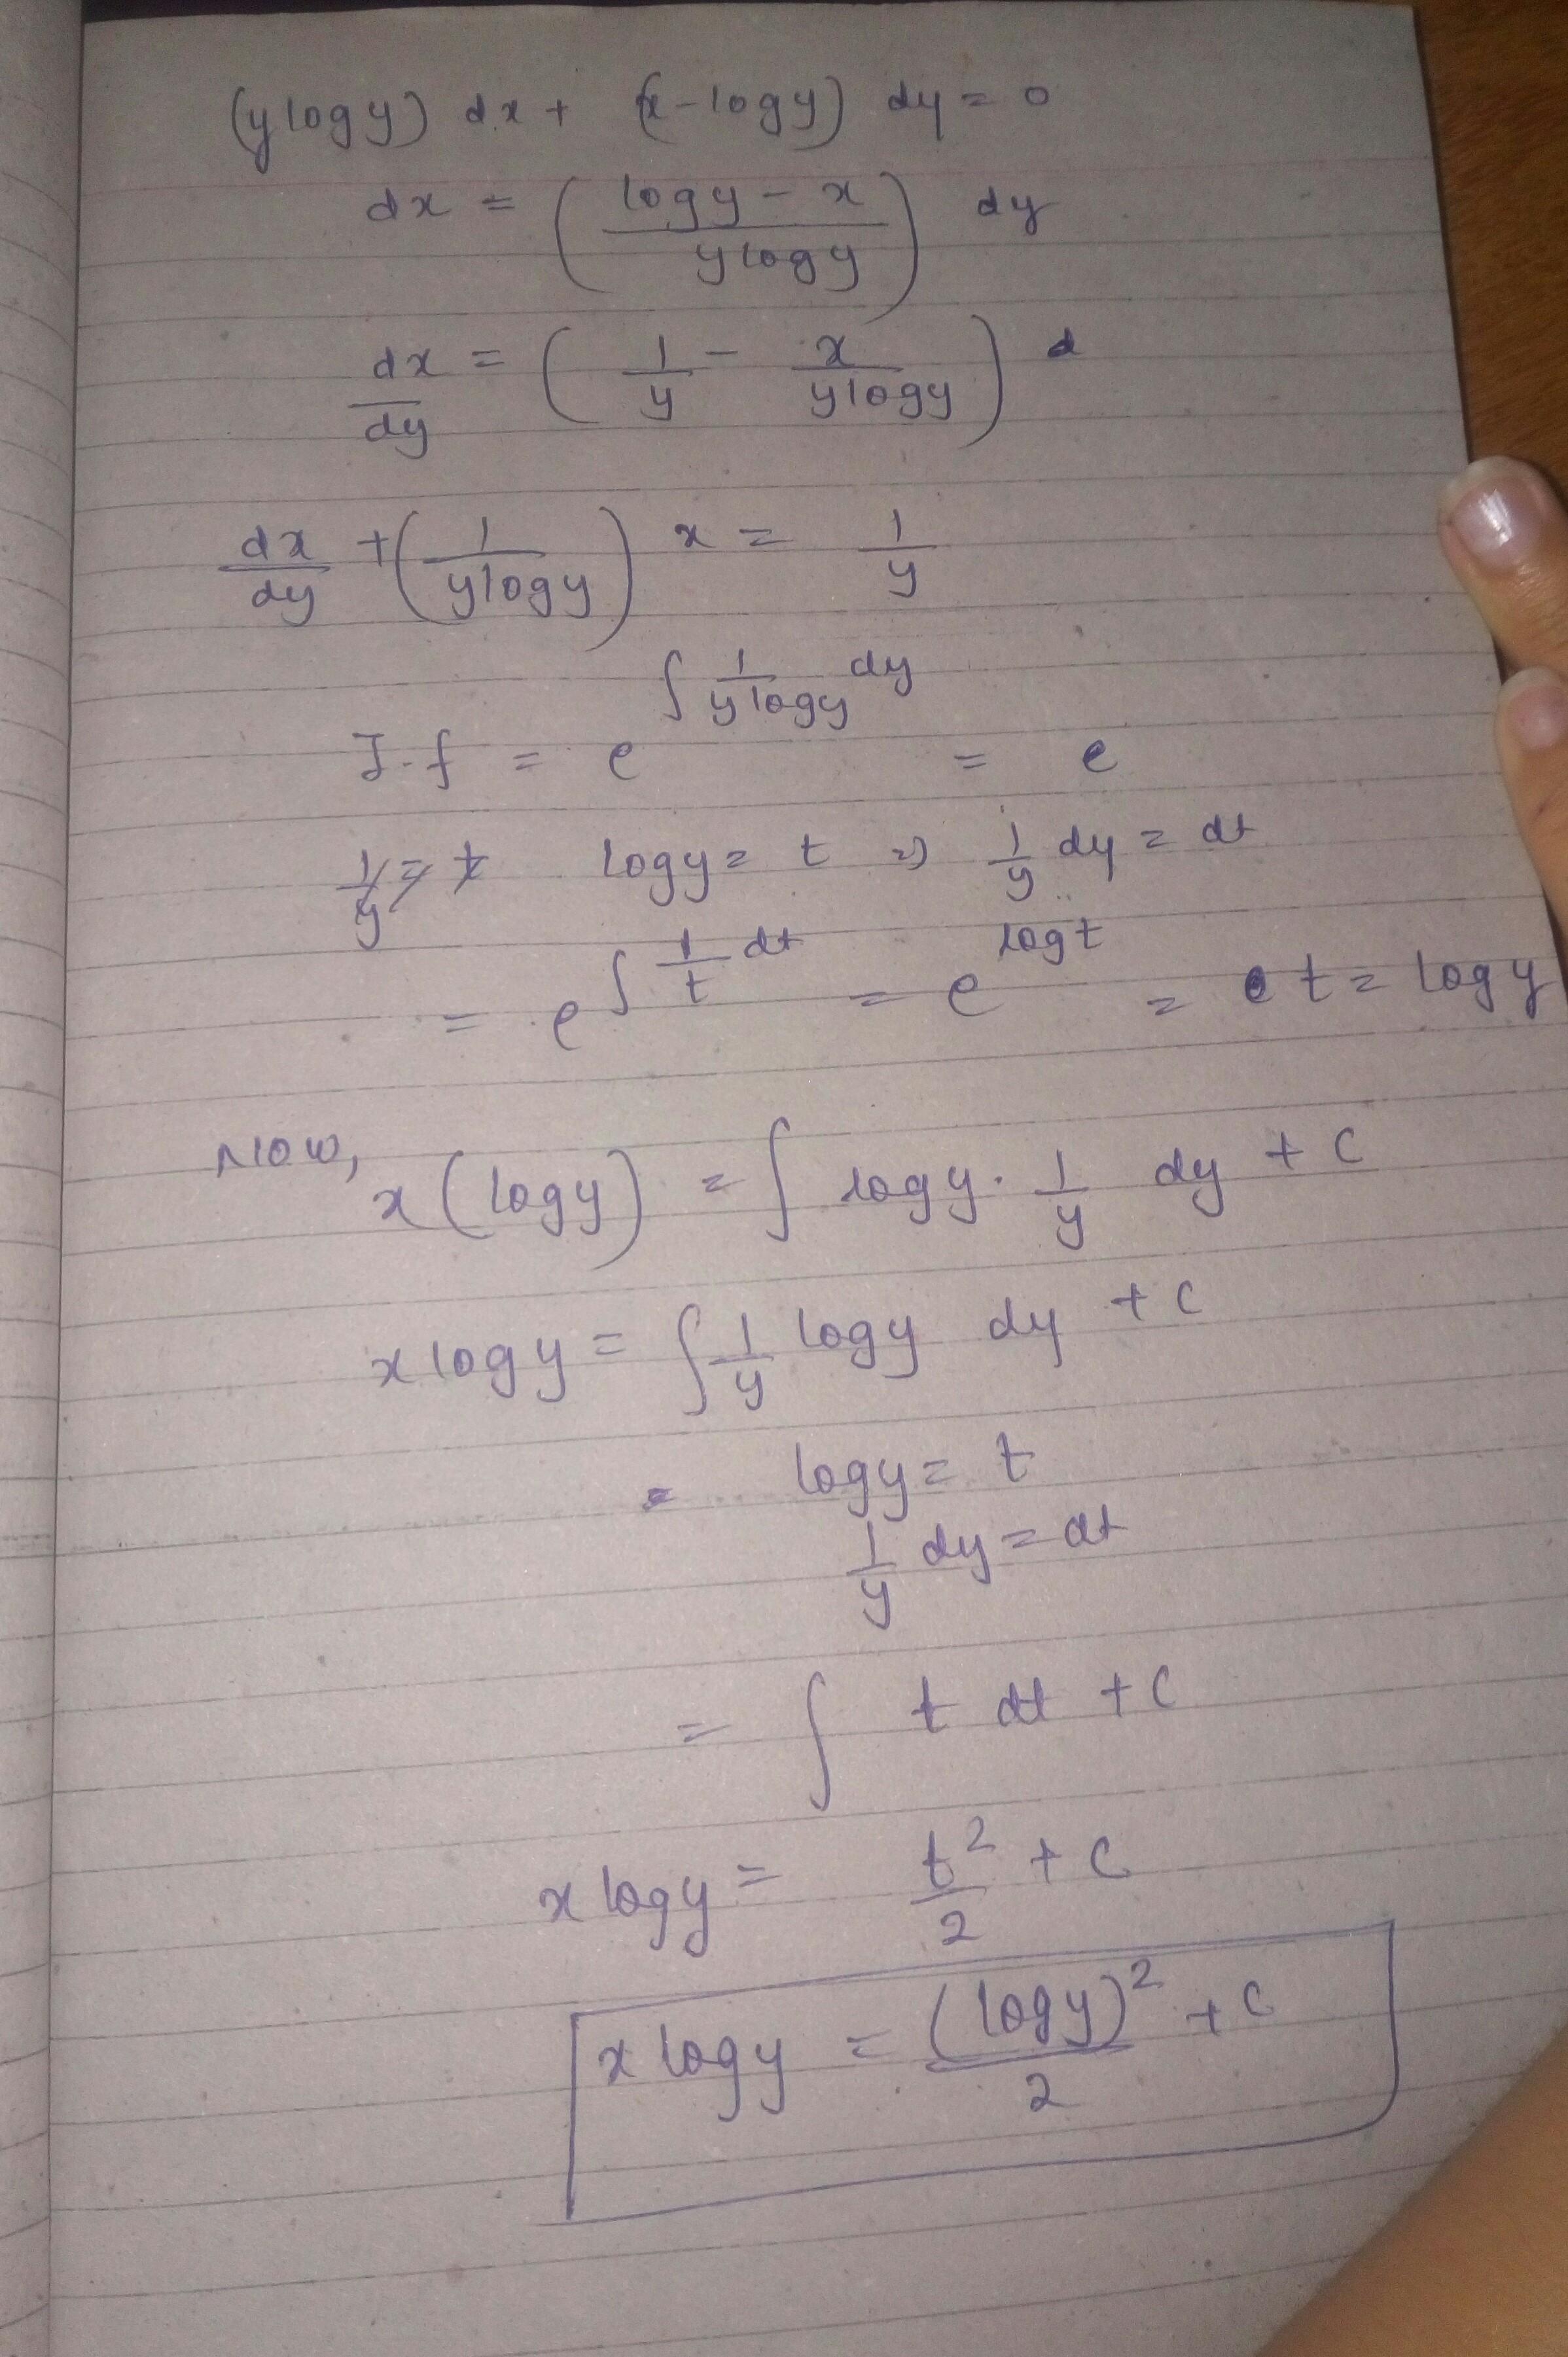 (y log y) dx + (x - log y) dy = 0
dx = ( (log y - x) / (y log y) ) dy
dx/dy = ( 1/y - x/(y log y) ) d
dx/dy + ( 1/(y log y) ) x = 1/y
I.f = e^(∫ 1/(y log y) dy) = e
1/y = t log y = t => 1/y dy = dt
= e^(∫ 1/t dt) = e^(log t) = t = log y
Now,
x (log y) = ∫ log y . 1/y dy + c
x log y = ∫ 1/y log y dy + c
= log y = t
1/y dy = dt
= ∫ t dt + c
x log y = t²/2 + c
x log y = (log y)²/2 + c